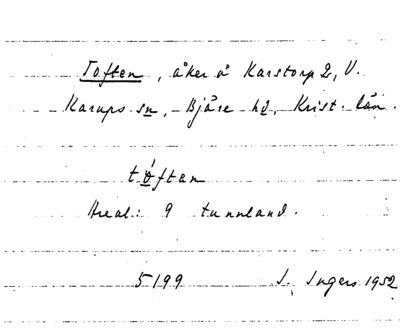 Toften, åker å Karstorp 2, V.
Karups sn, Bjäre hd, Krist. län.
tóftan
Areal: 9 tunnland.
5199 I. Ingers 1952